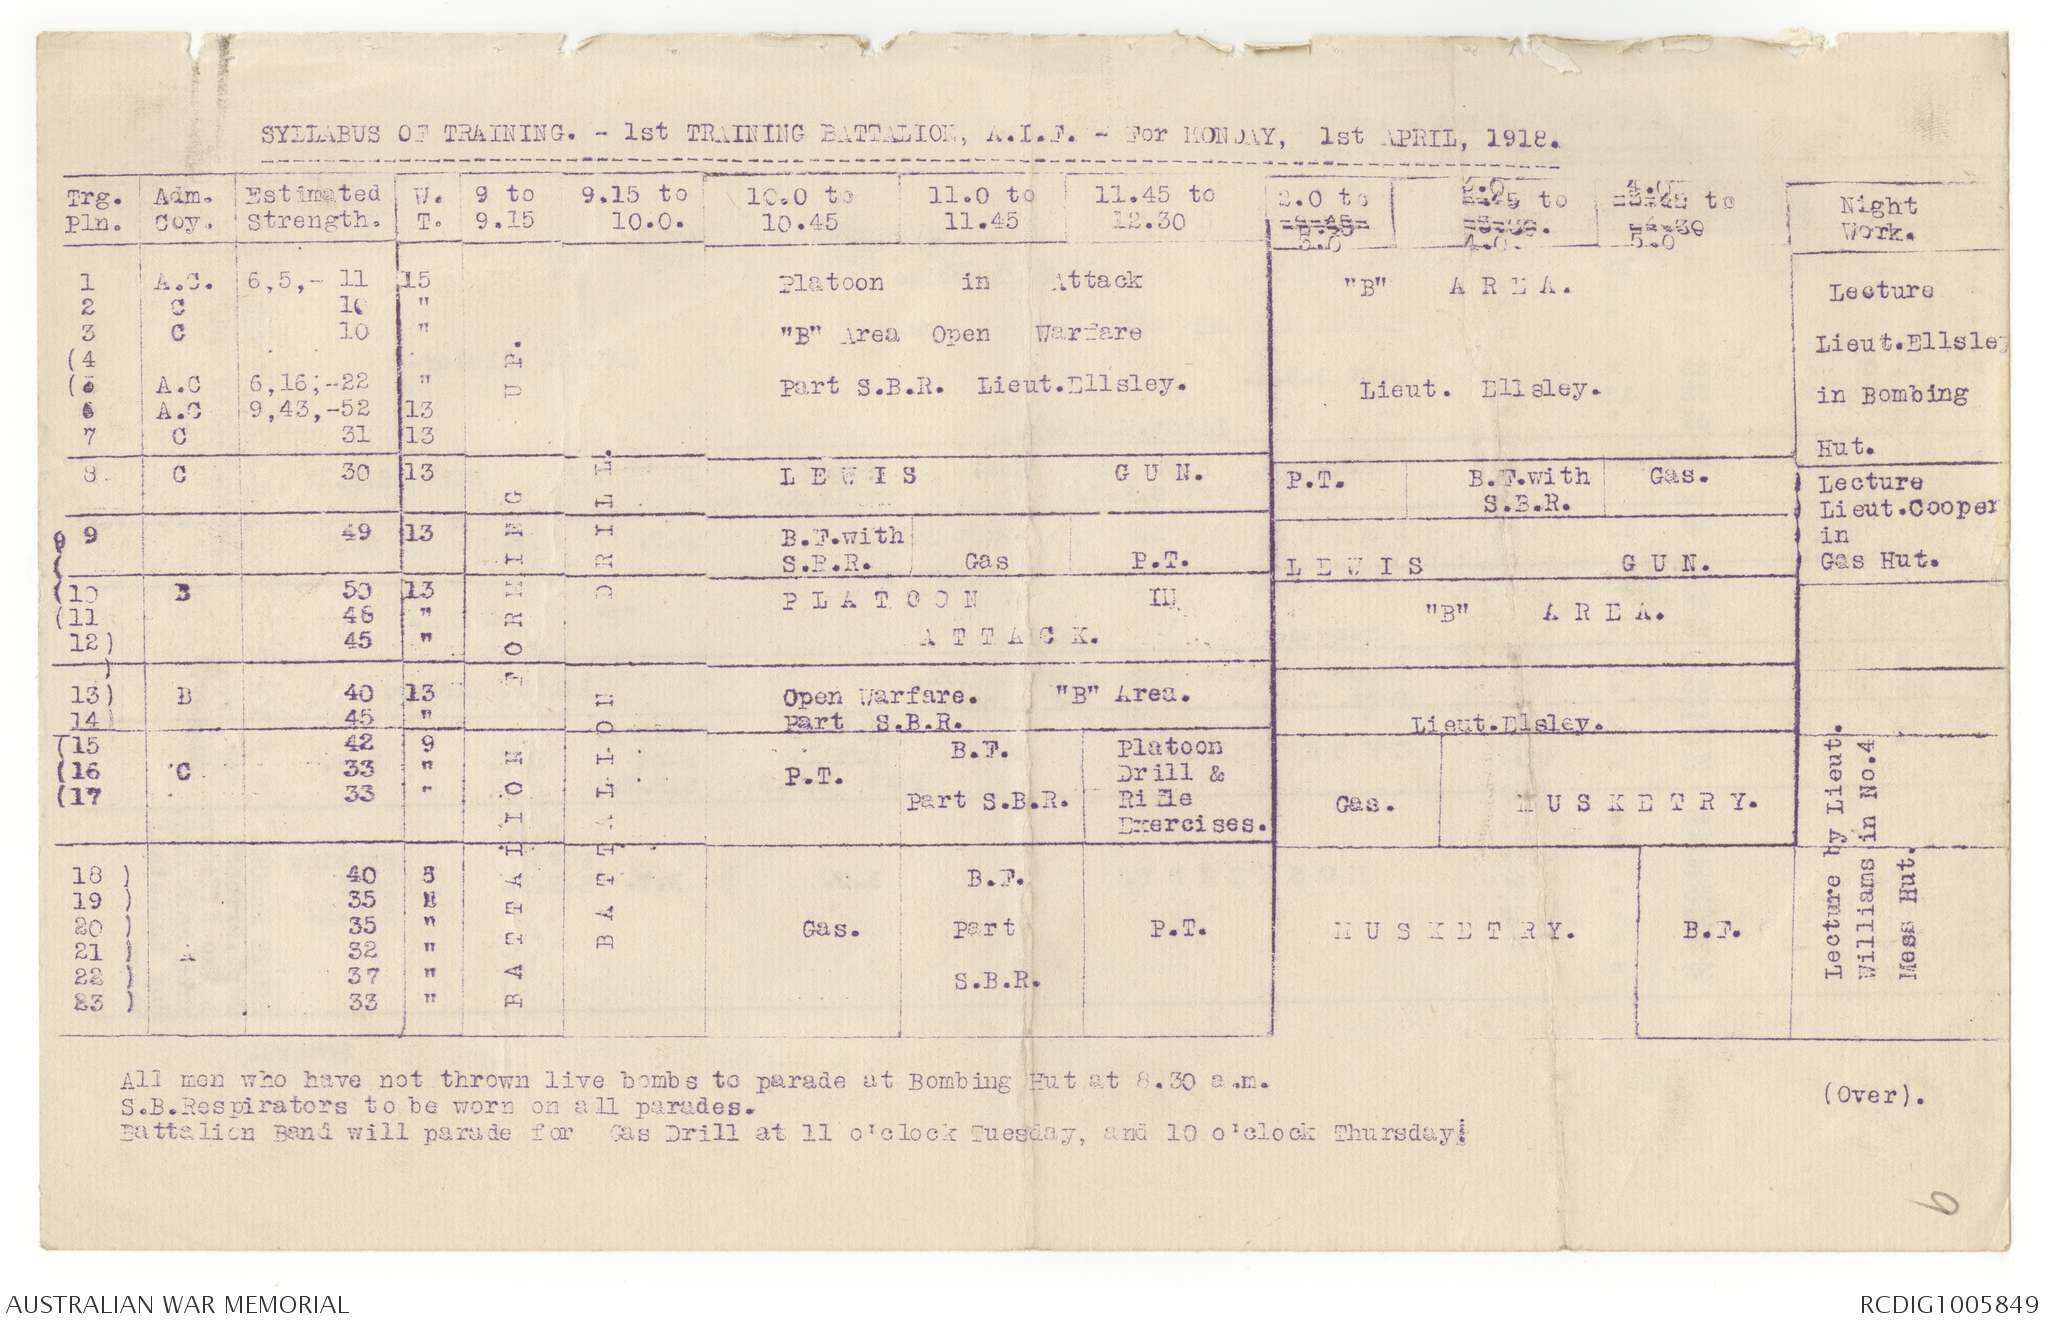 SYLLABUS OF TRAINING. - 1st TRAINING BATTALION, A.I.F. - For MONDAY, 1st APRIL, 1918.
Trg. Adm. Estimated W. 9 to 9.15 to 10.0 to 11.0 to 11.45 to 2.0 to 3.0 to 4.0 to Night
Pln. Coy. Strength. T. 9.15 10.0. 10.45 11.45 12.30 3.0 4.0. 5.0 Work.
1 A.C. 6,5,- 11 15 Platoon in Attack "B" A R E A. Lecture
2 C 10 "
3 C 10 " "B" Area Open Warfare Lieut.Ellsley
(4
(5 A.C 6,16;-22 " Part S.B.R. Lieut.Ellsley. Lieut. Ellsley. in Bombing
6 A.C 9,43,-52 13
7 C 31 13 Hut.
8 C 30 13 L E W I S G U N. P.T. B.F.with Gas. Lecture
S.B.R. Lieut.Cooper
9 9 49 13 B.F.with in
S.B.R. Gas P.T. L E W I S G U N. Gas Hut.
(10 B 50 13 P L A T O O N IN "B" A R E A.
(11 46 "
12) 45 " A T T A C K.
13) B 40 13 Open Warfare. "B" Area.
14) 45 " Part S.B.R. Lieut.Elsley.
(15 42 9 B.F. Platoon
(16 C 33 " P.T. Drill &
(17 33 " Part S.B.R. Rifle Gas. M U S K E T R Y.
Exercises.
18 ) 40 5 B.F.
19 ) 35 "
20 ) 35 " Gas. Part P.T. M U S K E T R Y. B.F.
21 ) A 32 "
22 ) 37 " S.B.R.
23 ) 33 "
BATTALION FORMING UP.
BATTALION DRILL.
Lecture by Lieut.
Williams in No.4
Mess Hut.
All men who have not thrown live bombs to parade at Bombing Hut at 8.30 a.m.
(Over).
S.B.Respirators to be worn on all parades.
Battalion Band will parade for Gas Drill at 11 o'clock Tuesday, and 10 o'clock Thursday.
9
AUSTRALIAN WAR MEMORIAL
RCDIG1005849